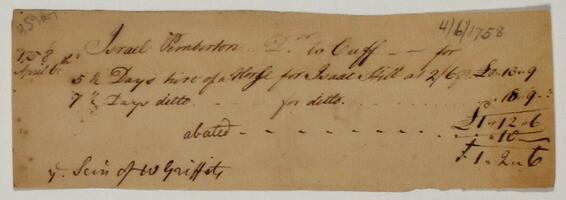 4/6/1758
Israel Pemberton Dr. to Cuff -- for
1758
April 6th
5 ½ Days hire of a Horse for Isaac Still at 2/6 £0-13-9
7 ½ Days ditto - - for ditto - - 18-9
£1-12-6
abated - - - - - - - 10-
£1-2-6
of W Griffits